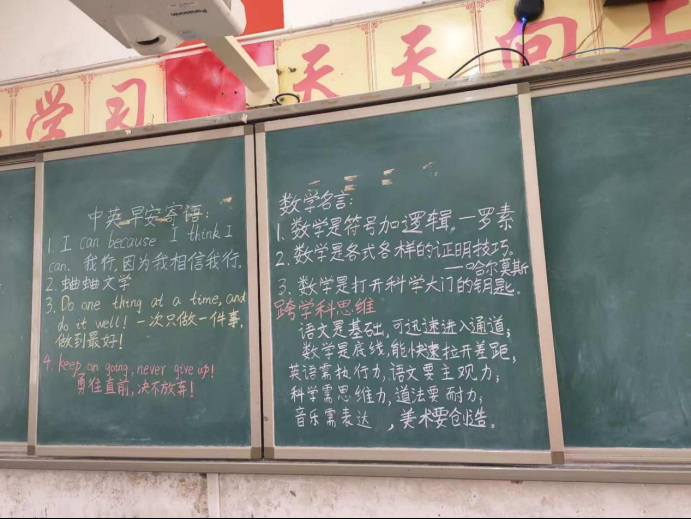 Panasonic
学习
天天向上
中英早安寄语:
1. I can because I think I
can. 我行,因为我相信我行.
2. 蛐蛐文学
3. Do one thing at a time, and
do it well! 一次只做一件事,
做到最好!
4. keep on going, never give up!
勇往直前,决不放弃!
数学名言:
1. 数学是符号加逻辑。—罗素
2. 数学是各式各样的证明技巧。
——哈尔莫斯
3. 数学是打开科学大门的钥匙。
跨学科思维
语文是基础,可迅速进入通道;
数学是底线,能快速拉开差距;
英语需执行力,语文要主观力;
科学需思维力,道法要耐力;
音乐需表达 ,美术要创造。